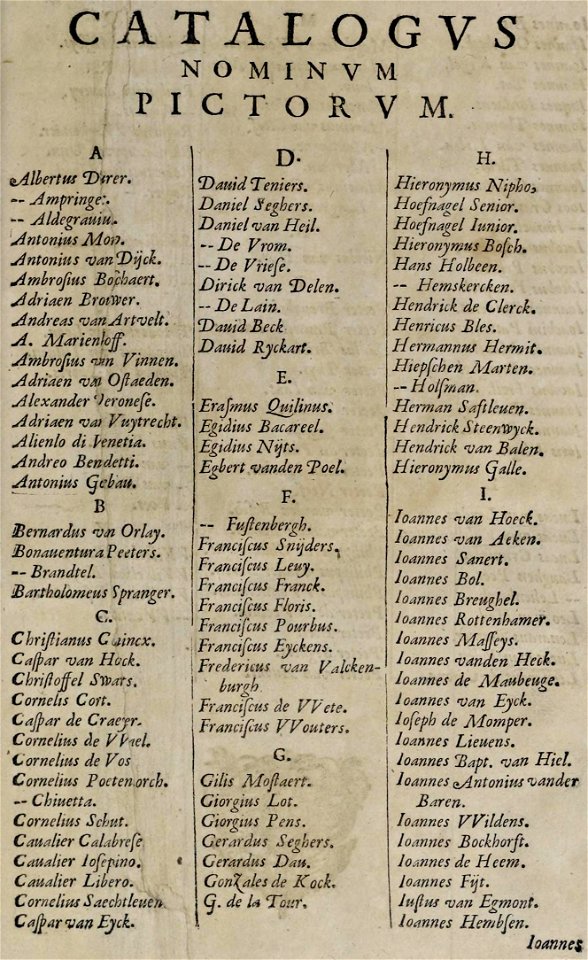 CATALOGVS
NOMINVM
PICTORVM.
A
Albertus Durer.
-- Ampringer.
-- Aldegrauiu.
Antonius Mon.
Antonius van Dijck.
Ambrosius Boschaert.
Adriaen Brouwer.
Andreas van Artvelt.
A. Marienhoff.
Ambrosius van Vinnen.
Adriaen van Ostaeden.
Alexander Veronese.
Adriaen van Vuytrecht.
Alienlo di Venetia.
Andreo Bendetti.
Antonius Gebau.
B
Bernardus van Orlay.
Bonauentura Peeters.
-- Brandtel.
Bartholomeus Spranger.
C.
Christianus
Caspar van Hoeck.
Christoffel Swars.
Cornelis Cort.
Caspar de Craeyer.
Cornelius de VVael.
Cornelius de Vos
Cornelius Poetenborch.
-- Chiuetta.
Cornelius Schut.
Caualier Calabrese
Caualier Iosepino.
Caualier Libero.
Cornelius Saechtleuen
Caspar van Eyck.
D.
Dauid Teniers.
Daniel Seghers.
Daniel van Heil.
-- De Vrom.
-- De Vriese.
Dirick van Delen.
-- De Lain.
Dauid Beck
Dauid Ryckart.
E.
Erasmus Quilinus.
Egidius Bacareel.
Egidius Nijts.
Egbert vanden Poel.
F.
-- Fustenbergh.
Franciscus Snijders.
Franciscus Leuy.
Franciscus Franck.
Franciscus Floris.
Franciscus Pourbus.
Franciscus Eyckens.
Fredericus van Valcken-
burgh.
Franciscus de VVete.
Franciscus VVouters.
G.
Gilis Mostaert.
Giorgius Lot.
Giorgius Pens.
Gerardus Seghers.
Gerardus Dau.
Gonzales de Kock.
G. de la Tour.
H.
Hieronymus Nipho,
Hoefnagel Senior.
Hoefnagel Iunior.
Hieronymus Bosch.
Hans Holbeen.
-- Hemskercken.
Hendrick de Clerck.
Henricus Bles.
Hermannus Hermit.
Hiepschen Marten.
-- Holsman.
Herman Saftleuen.
Hendrick Steenwyck.
Hendrick van Balen.
Hieronymus Galle.
I.
Ioannes van Hoeck.
Ioannes van Aeken.
Ioannes Sanert.
Ioannes Bol.
Ioannes Breughel.
Ioannes Rottenhamer.
Ioannes Masseys.
Ioannes vanden Heck.
Ioannes de Maubeuge.
Ioannes van Eyck.
Ioseph de Momper.
Ioannes Lieuens.
Ioannes Bapt. van Hiel.
Ioannes Antonius vander
Baren.
Ioannes VVildens.
Ioannes Bockhorst.
Ioannes de Heem.
Ioannes Fijt.
Iustus van Egmont.
Ioannes Hembsen.
Ioannes